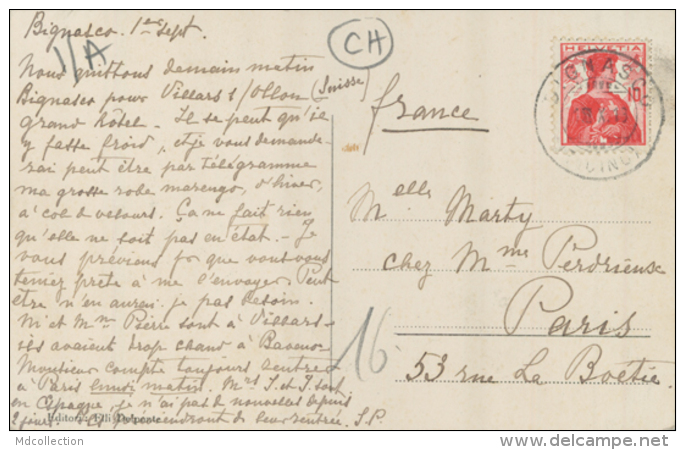 Bignasco. 1er Sept.
1/A
CH
Nous quittons demain matin
Bignasco pour Villars s/Ollon (Suisse)
grand hôtel. Il se peut qu'il
y fasse froid, et je vous demande-
rai peut être par télégramme
ma grosse robe marengo, d'hiver,
à col de velours. Ça ne fait rien
qu'elle ne soit pas en état. - Je
vous préviens pr que vous vous
teniez prête à me l'envoyer. Peut
être n'en aurai je pas besoin.
Mr et Mme Pierre sont à Villars -
ils avaient trop chaud à Baveno -
Monsieur compte toujours rentrer
à Paris lundi matin. Mrs J. et J. sont
en Espagne, je n'ai pas de nouvelles depuis
2 jours. de leur rentrée. J.P.
Editore
Mdcollection
HELVETIA
10
BIGNASCO
france
Melle Marty
chez Mme Perdrieuse
Paris
53 rue La Boëtie
16
www.delcampe.net